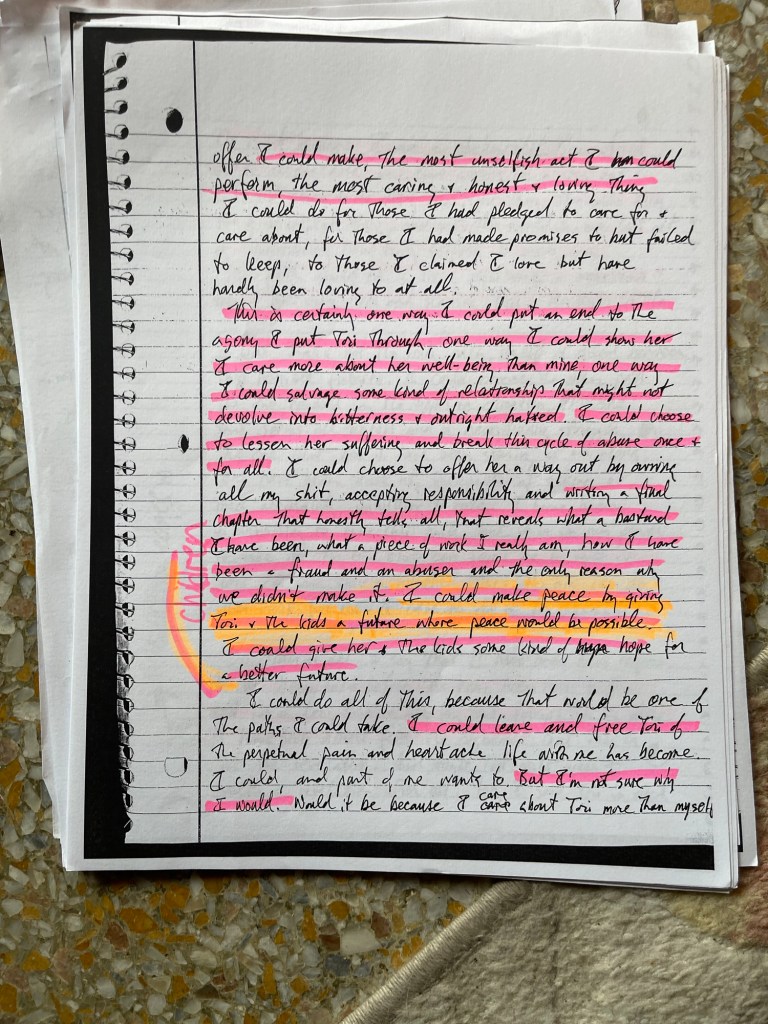 offer I could make, the most unselfish act I could
perform, the most caring & honest & loving thing
I could do for those I had pledged to care for &
care about, for those I had made promises to but failed
to keep, to those I claimed I love but have
hardly been loving to at all.
This is certainly one way I could put an end to the
agony I put Tori through, one way I could show her
I care more about her well-being than mine, one way
I could salvage some kind of relationship that might not
devolve into bitterness & outright hatred. I could choose
to lessen her suffering and break this cycle of abuse once &
for all. I could choose to offer her a way out by owning
all my shit, accepting responsibility and writing a final
chapter that honestly tells all, that reveals what a bastard
I have been, what a piece of work I really am, how I have
been a fraud and an abuser and the only reason why
we didn't make it. I could make peace by giving
Tori & the kids a future where peace would be possible.
I could give her & the kids some kind of hope for
a better future.
children
I could do all of this, because that would be one of
the paths I could take. I could leave and free Tori of
the perpetual pain and heartache life with me has become.
I could, and part of me wants to. But I'm not sure why
I would. Would it be because I care about Tori more than myself